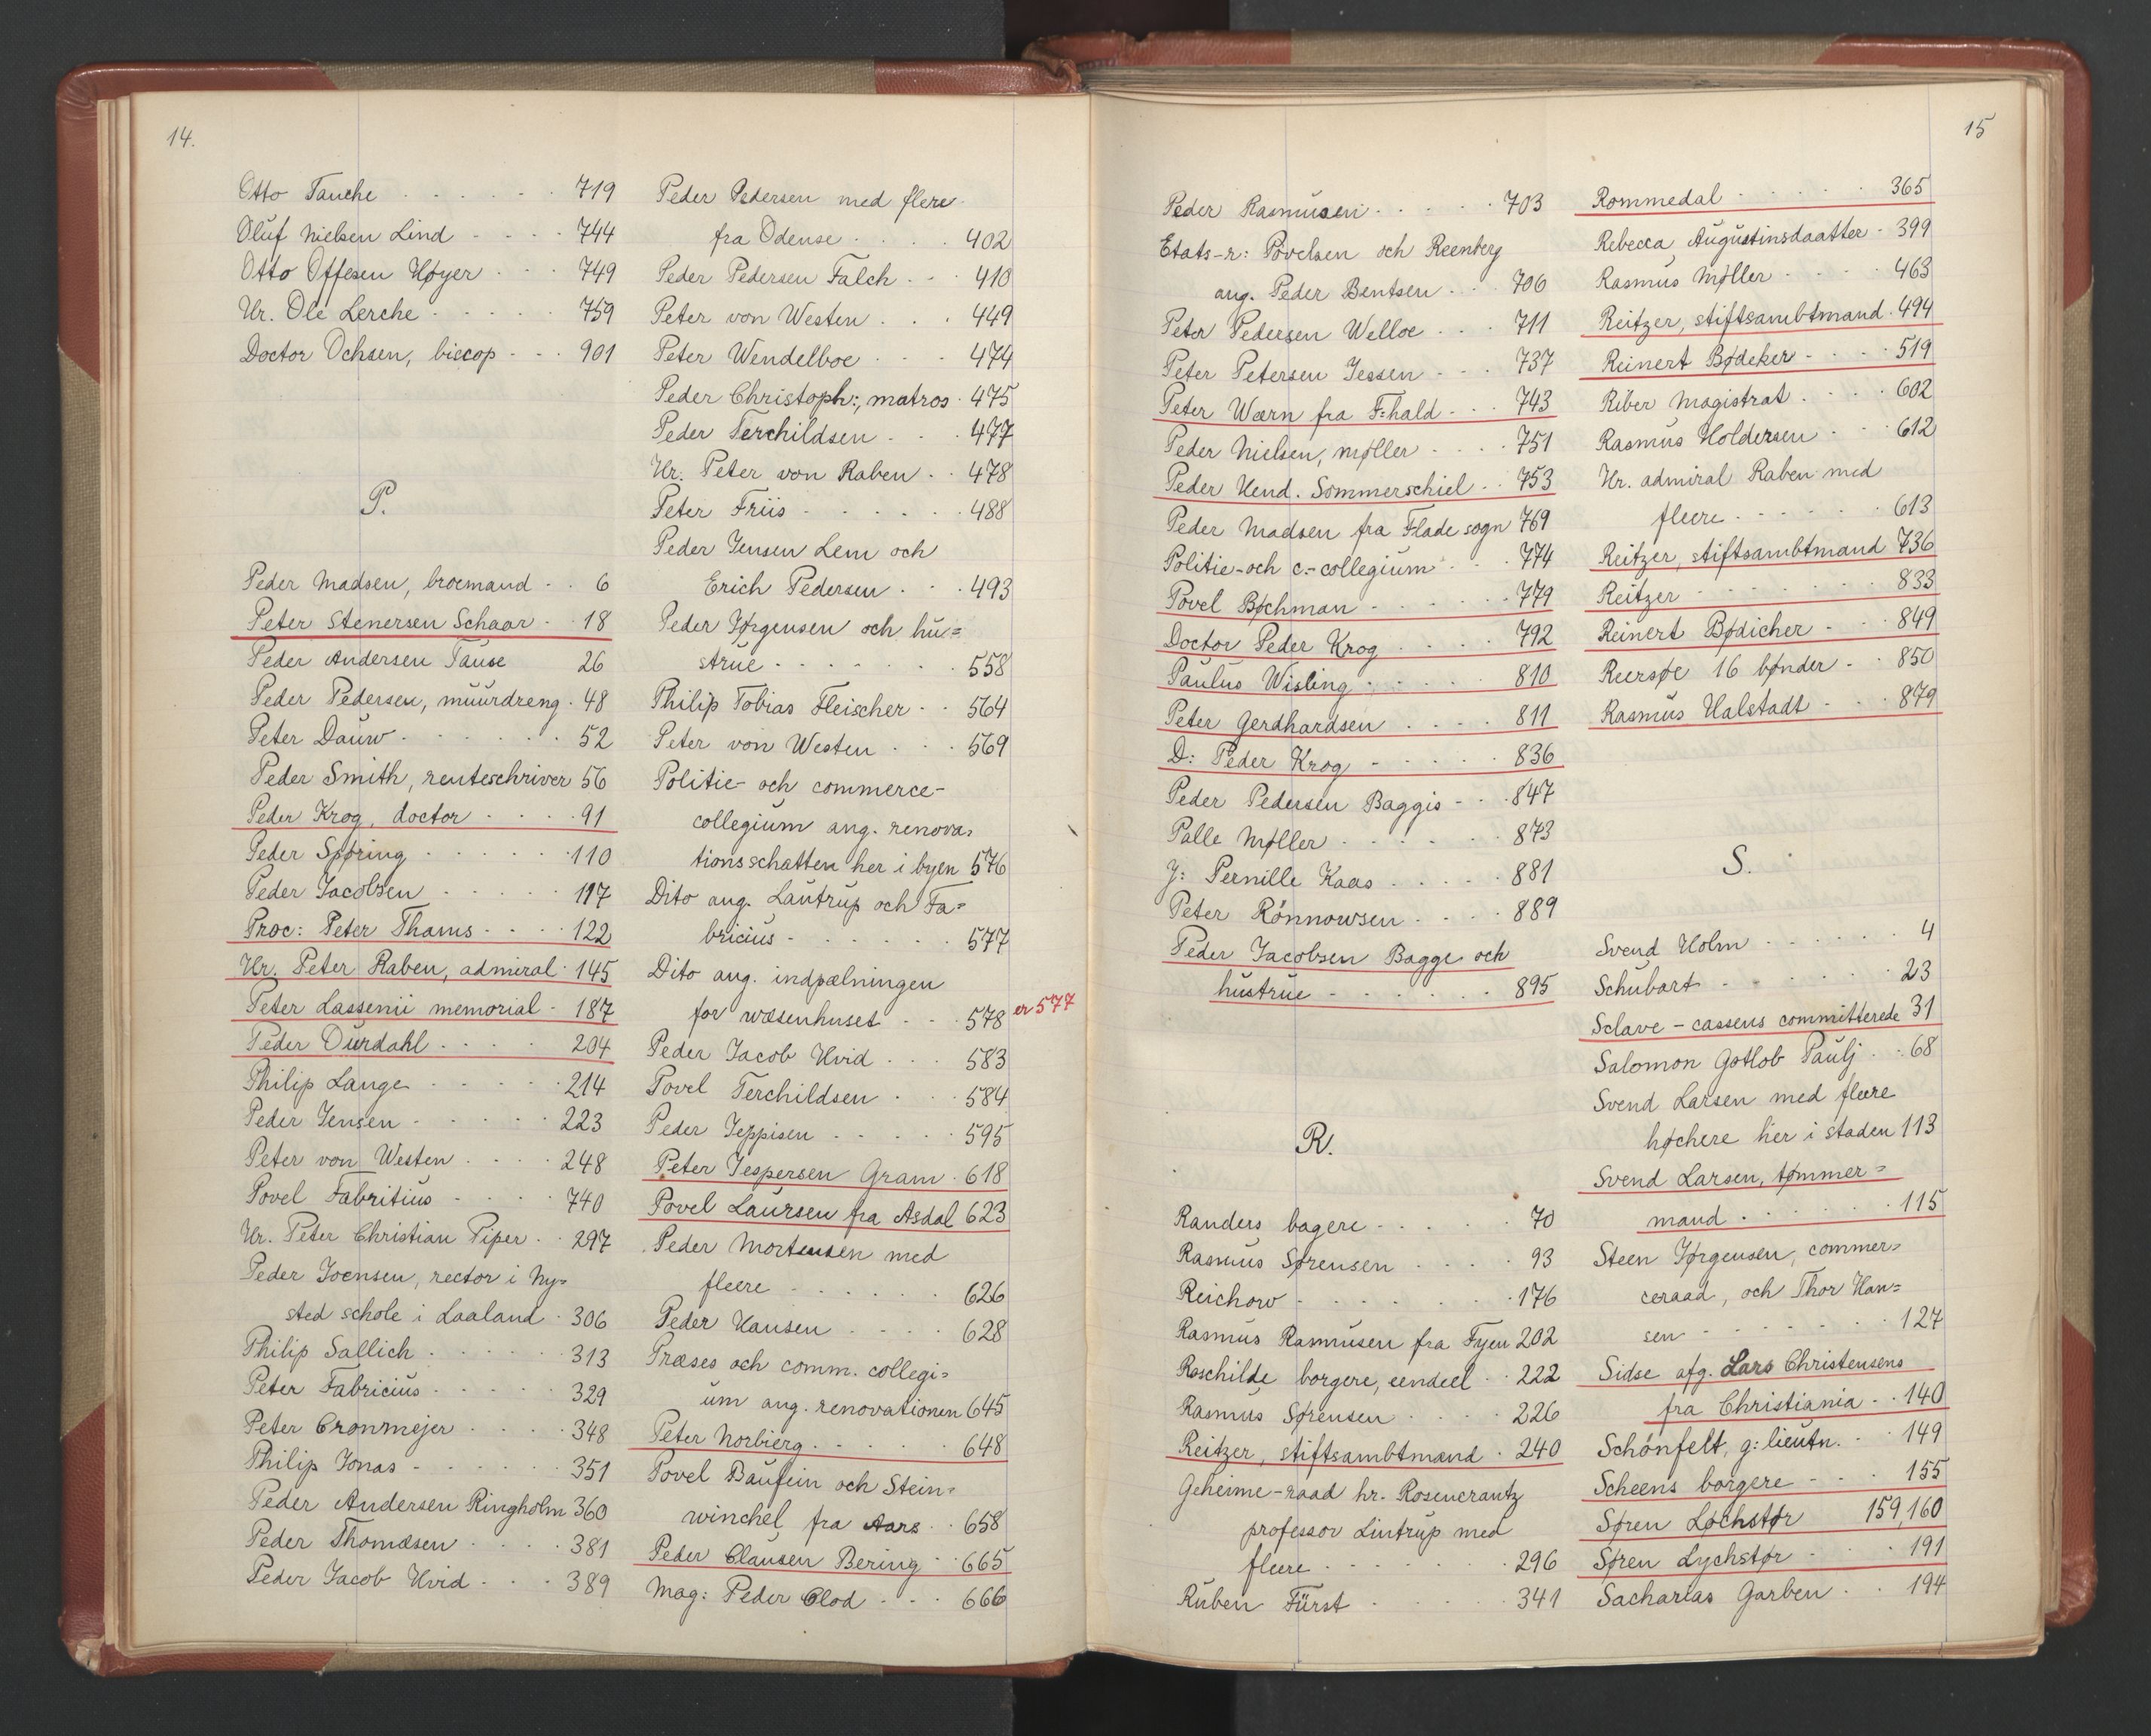 14.
Otto Tauche . . . . . . 719
Oluf Nielsen Lind - - - - 744
Otto Offesen Høyer - - - 749
Hr. Ole Lerche - - - - - 759
Doctor Ochsen, biscop - - - 901
P.
Peder Madsen, broemand - - 6
Peter Stenersen Schaar - - 18
Peder Andersen Tause 26
Peder Pedersen, muurdreng - 48
Peter Dauw - - - - - - 52
Peder Smith, renteschriver 56
Peder Krog, doctor - - - - 91
Peder Spøring - - - - - - 110
Peder Jacobsen - - - - - 117
Proc: Peter Thams - - - - 122
Hr. Peter Raben, admiral - 145
Peter Lassenii memorial - 187
Peder Durdahl - - - - 204
Philip Lange - - - - - 214
Peder Jensen - - - - - 223
Peter von Westen - - - - 248
Povel Fabritius - - - - 740
Hr. Peter Christian Piper - - 297
Peder Joensen, rector i Ny=
sted schole i Laaland - 306
Philip Sallich - - - - - 313
Peter Fabricius - - - - - 329
Peter Cronmejer - - - - 348
Philip Jonas - - - - - - 351
Peder Andersen Ringholm 360
Peder Thomæsen - - - - 381
Peder Jacob Hvid - - - 389
Peder Pedersen med flere
fra Odense - - - - 402
Peder Pedersen Falch - - - 410
Peter von Westen - - - 449
Peter Wendelboe - - - - 474
Peder Christoph:, matros - 475
Peder Terchildsen - - - 477
Hr. Peter von Raben - - 478
Peter Friis - - - - - - 488
Peder Jensen Lem och
Erich Pedersen - - - 493
Peder Jørgensen och hu=
strue - - - - - - - 558
Philip Tobias Fleischer - - 564
Peter von Westen - - - 569
Politie- och commerce-
collegium ang. renova=
tionsschatten her i byen 576
Dito ang. Lautrup och Fa=
bricius - - - - - - 577
Dito ang. indpælningen
for wæsenhuset - - - 578 er 577
Peder Jacob Hvid - - - 583
Povel Terchildsen - - - 584
Peder Jeppisen - - - - - 595
Peter Jespersen Gram - 618
Povel Laursen fra Asdal 623
Peder Mortensen med
fleere - - - - - - 626
Peder Hansen - - - - 628
Præses och comm. collegi=
um ang. renovationen 645
Peter Norbierg - - - - - 648
Povel Baufein och Stein=
winchel fra Aars - - 658
Peder Clausen Bering - - 665
Mag: Peder Clod - - - 666
15
Peder Rasmusen - - - - - 703
Etats-r: Povelsen och Reenberg
ang. Peder Bentsen - - - 706
Peter Pedersen Welloe - - - 711
Peter Petersen Jessen - - - 737
Peter Wærn fra F:hald - - - 743
Peder Nielsen, møller - - - - 751
Peder Hend. Sommerschiel - - 753
Peder Madsen fra Flade sogn 769
Politie- och c.-collegium - - - 774
Povel Bøchman - - - - - - 779
Doctor Peder Krog - - - - 792
Paulus Wisling - - - - - 810
Peter Gerdhardsen - - - - 811
D: Peder Krog - - - - - 836
Peder Pedersen Baggis - - - 847
Palle Møller - - - - - - 873
J: Pernille Kaas - - - - - 881
Peter Rønnowsen - - - - 889
Peder Jacobsen Bagge och
hustrue - - - - - - - 895
R.
Randers bagere - - - - - 70
Rasmus Sørensen - - - - 93
Reichow - - - - - - - 176
Rasmus Rasmusen fra Fyen 202
Roschilde borgere, eendeel - - 222
Rasmus Sørensen - - - - 226
Reitzer, stiftsambtmand - 240
Geheime-raad hr. Rosencrantz
professor Lintrup med
fleere - - - - - - 296
Ruben Fürst - - - - - 341
Rommedal - - - - - 365
Rebecca Augustinsdaatter - 399
Rasmus Møller - - - - 463
Reitzer, stiftsambtmand - 494
Reinert Bødeker - - - - 519
Riber Magistrat - - - - 602
Rasmus Holdersen - - - 612
Hr. admiral Raben med
fleere - - - - - - 613
Reitzer, stiftsambtmand 736
Reitzer - - - - - - - 833
Reinert Bødicher - - - 849
Reersøe 16 bønder - - 850
Rasmus Halstadt - - - 879
S.
Svend Holm - - - - - - 4
Schubart - - - - - - - 23
Sclave-cassens committerede 31
Salomon Gotlob Paulj - - 68
Svend Larsen med fleere
høchere her i staden 113
Svend Larsen, tømmer=
mand - - - - - - 115
Steen Jørgensen, commer=
ceraad, och Thor Han=
sen - - - - - - - 127
Sidse afg. Lars Christensens
fra Christiania - - 140
Schönfelt, g: lieutn. - - 149
Scheens borgere - - - 155
Søren Løchstør 159,160
Søren Lychstør - - - - 191
Sacharias Garben - - 194